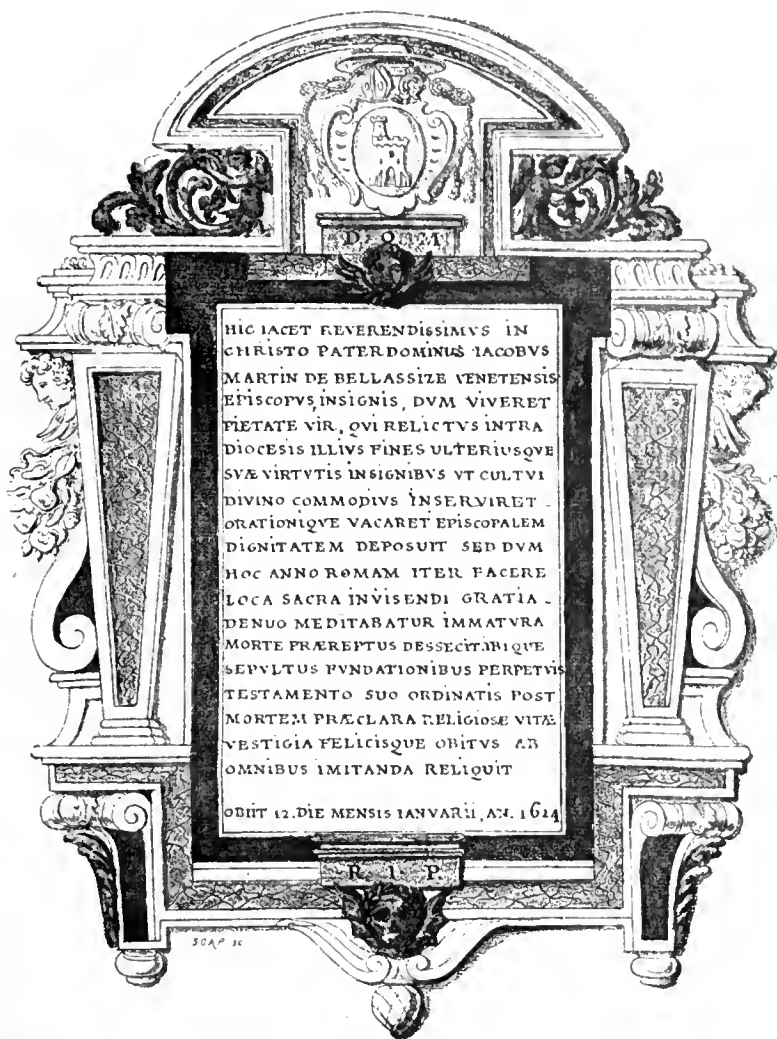 D. O. M
HIC IACET REVERENDISSIMVS IN
CHRISTO PATER DOMINUS IACOBVS
MARTIN DE BELLASSIZE VENETENSIS
EPISCOPVS, INSIGNIS, DVM VIVERET
PIETATE VIR, QVI RELICTVS INTRA
DIOCESIS ILLIVS FINES ULTERIUSQVE
SVÆ VIRTVTIS INSIGNIBVS VT CULTVI
DIVINO COMMODIVS INSERVIRET
ORATIONIQVE VACARET EPISCOPALEM
DIGNITATEM DEPOSUIT SED DVM
HOC ANNO ROMAM ITER FACERE
LOCA SACRA INVISENDI GRATIA
DENUO MEDITABATUR IMMATVRA
MORTE PRÆREPTUS DESSECIT IBIQUE
SEPVLTUS FVNDATIONIBUS PERPETVIS
TESTAMENTO SUO ORDINATIS POST
MORTEM PRÆCLARA RELIGIOSÆ VITÆ
VESTIGIA FELICISQUE OBITVS AB
OMNIBUS IMITANDA RELIQUIT
OBIIT 12. DIE MENSIS IANVARII, AN. 1624
R. I. P.